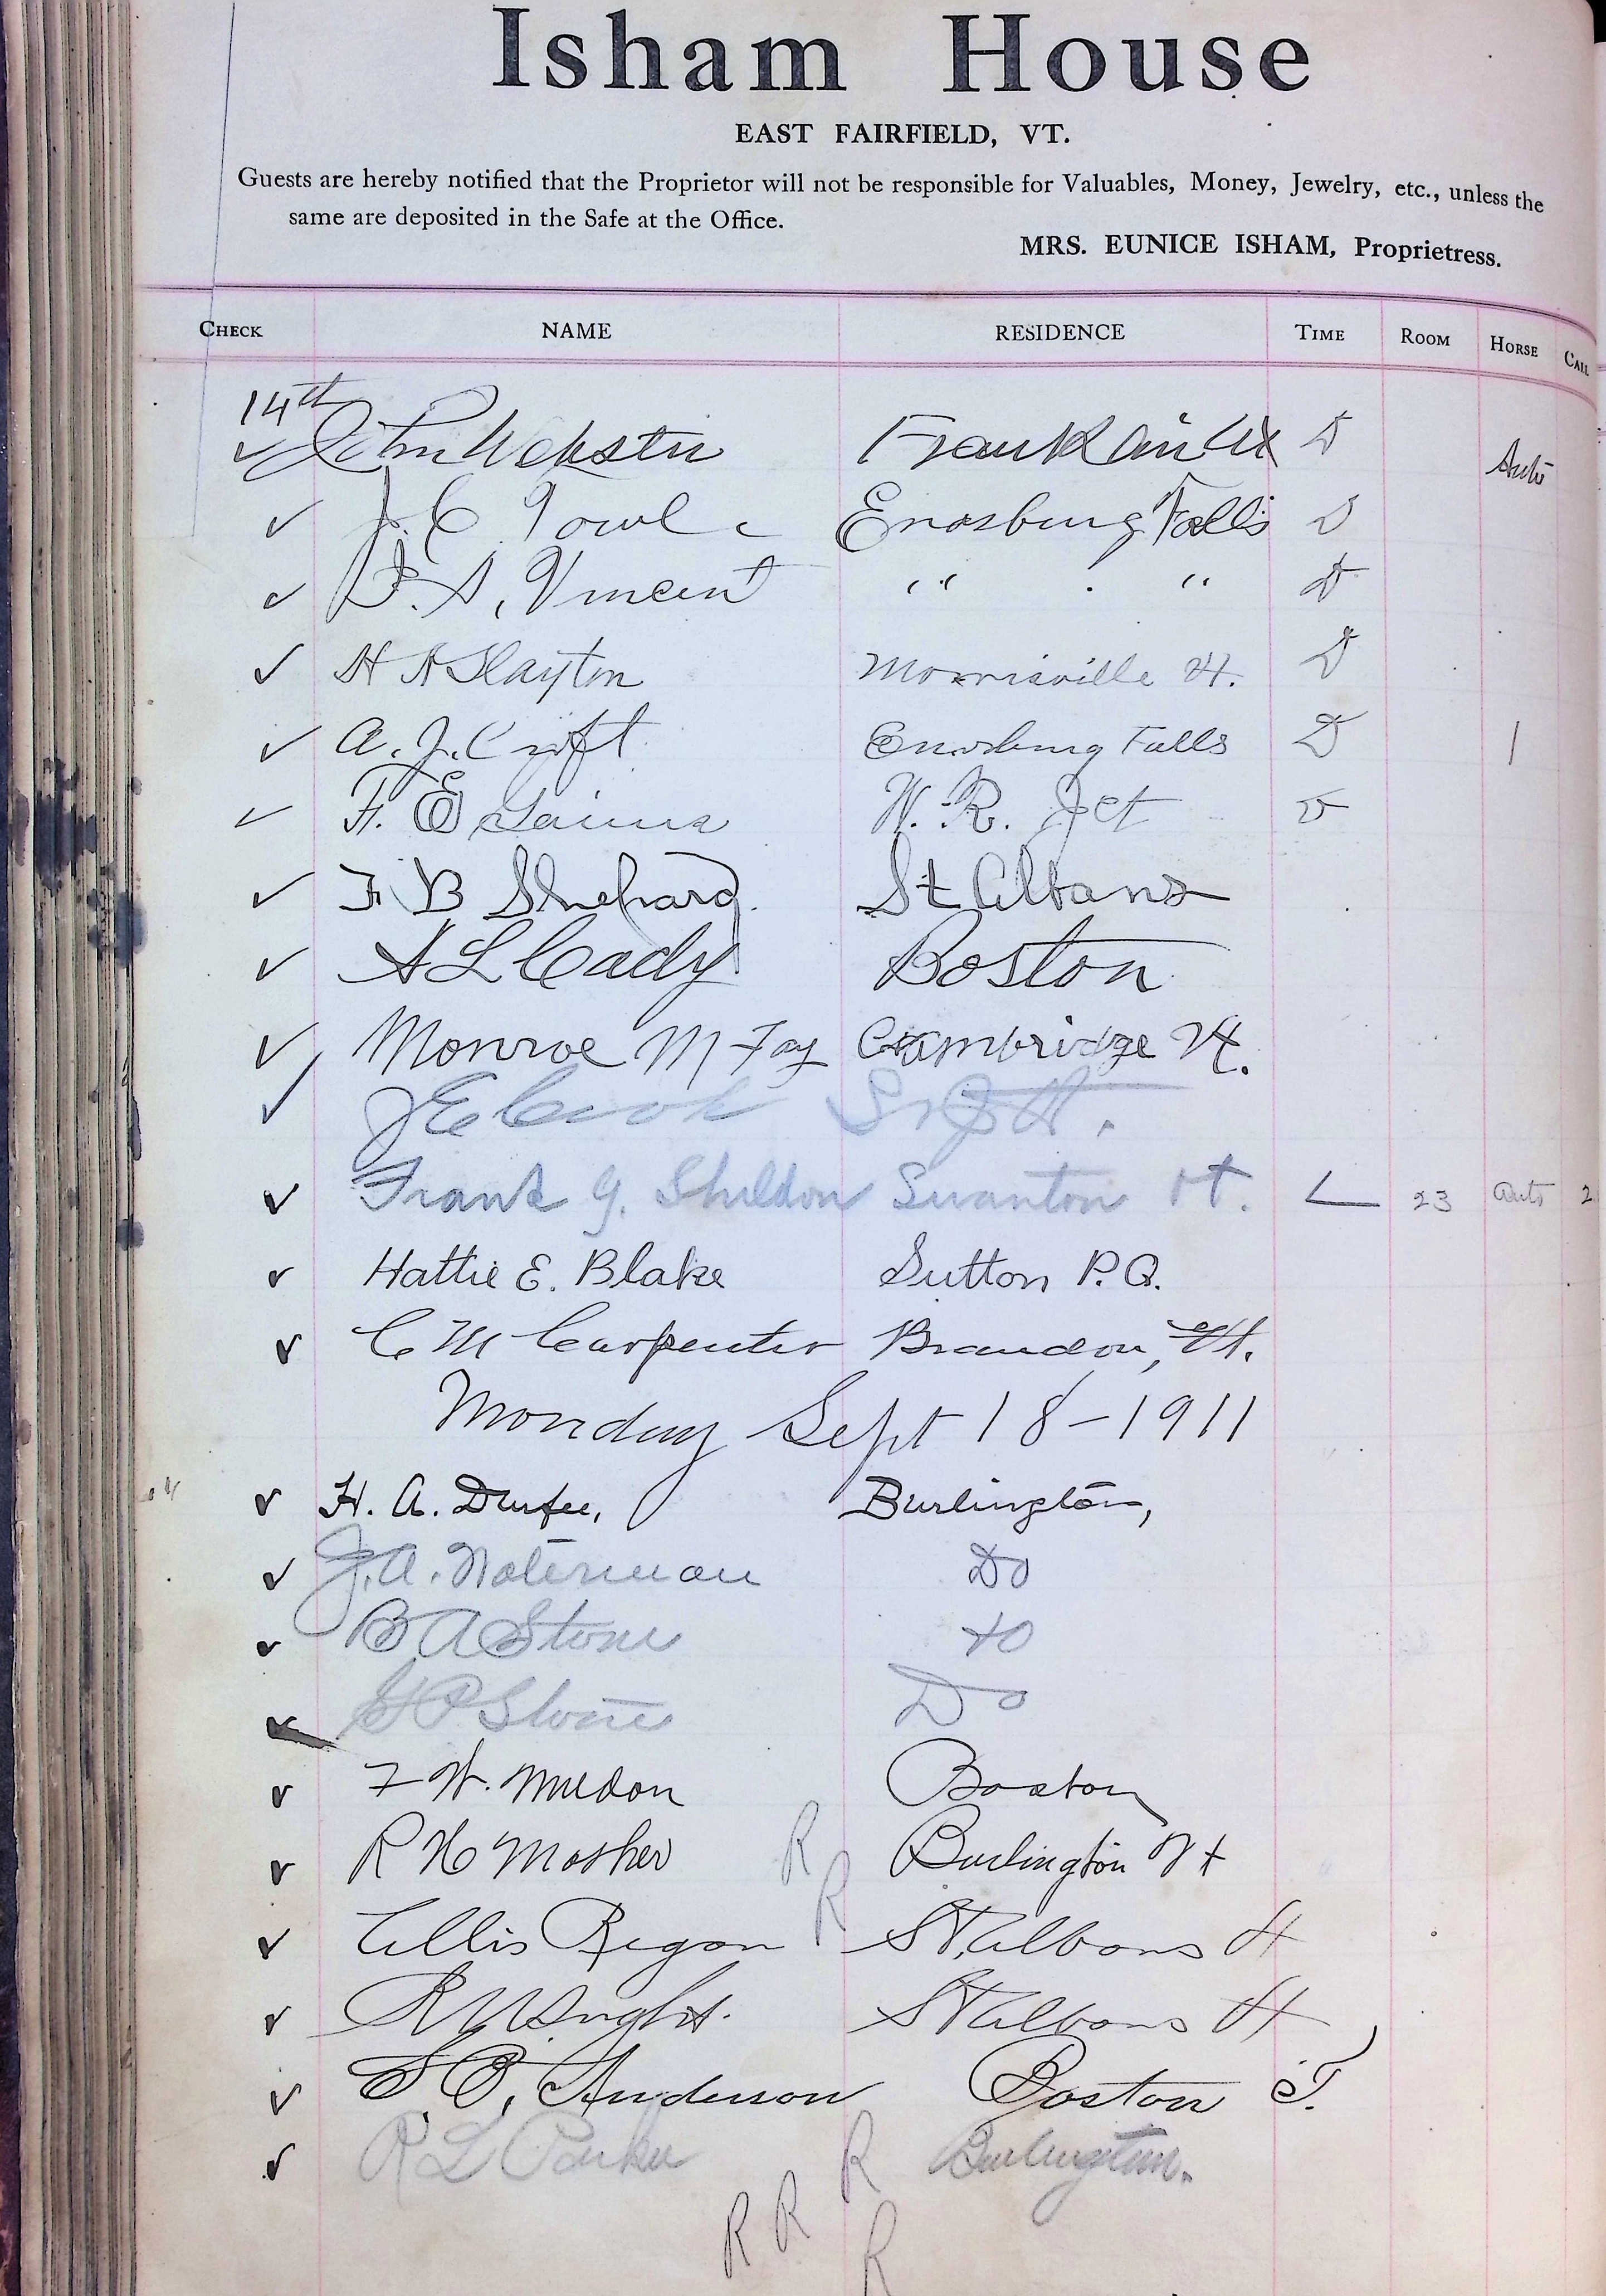 Isham House
EAST FAIRFIELD, VT.
Guests are hereby notified that the Proprietor will not be responsible for Valuables, Money, Jewelry, etc., unless the
same are deposited in the Safe at the Office.
MRS. EUNICE ISHAM, Proprietress.
CHECK NAME RESIDENCE TIME ROOM HORSE CALL
14th
✓ John Webster Franklin Vt D Auto
✓ J. C. Towle Enosburg Falls D
✓ D. A. Vincent " " D
✓ H A Slayton Morrisville Vt. D
✓ A. J. Croft Enosburg Falls D 1
✓ F. E. W. R. Jct
✓ F B Shepard St Albans
✓ A L Cady Boston
✓ Monroe M Fay Cambridge Vt.
✓ J E Cook
✓ Frank G. Sheldon Swanton Vt. L 23 Auto 2
✓ Hattie E. Blake Sutton P.Q.
✓ C M Carpenter Brandon, Vt.
Monday Sept 18-1911
✓ H. A. Durfee, Burlington,
✓ J. A. Waterman Do
✓ B A Stone Do
✓ Stone Do
✓ F W. Muldon Boston
✓ R H Mosher R Burlington Vt
R
✓ Ellis Regan St. Albans Vt
✓ R W Wright. St Albans Vt
✓ S. B. Anderson Boston T.
✓ R L Parker R Burlington.
R R R